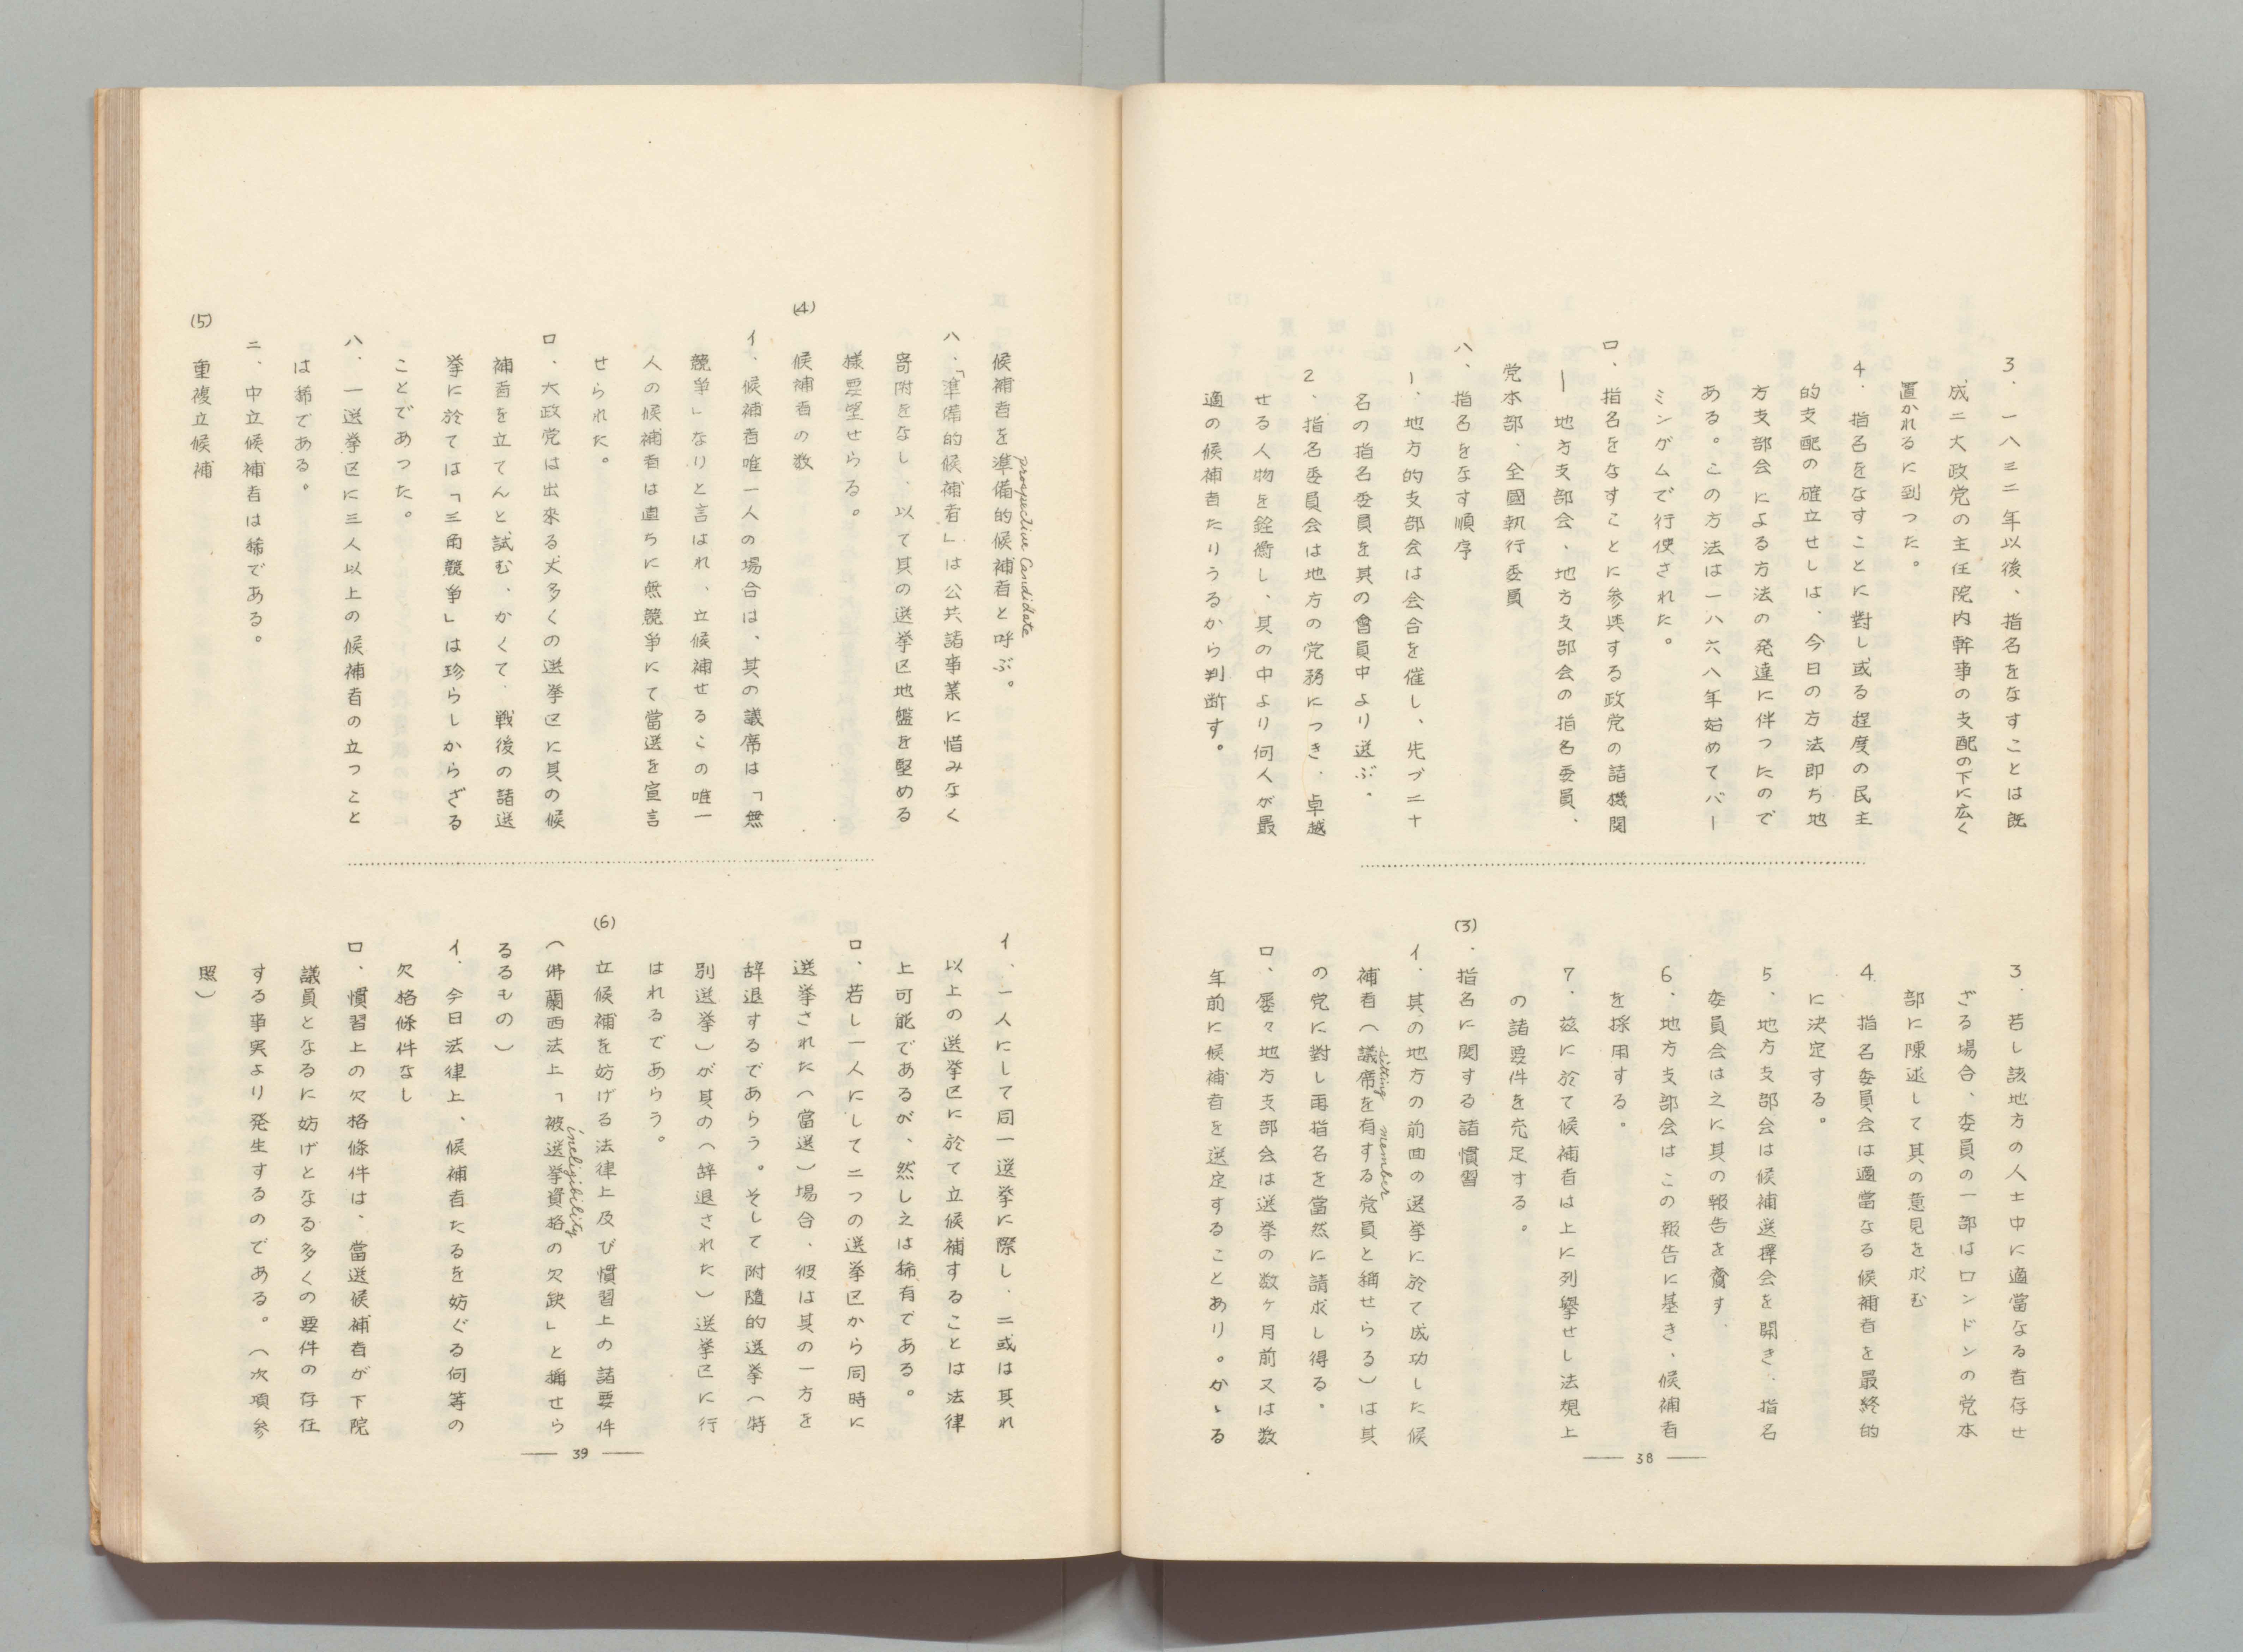 3．一八三二年以後、指名をなすことは既
成二大政党の主任院内幹事の支配の下に広く
置かれるに到つた。
4．指名をなすことに對し或る程度の民主
的支配の確立せしは、今日の方法即ち地
方支部会による方法の発達に伴つたので
ある。この方法は一八六八年始めてバー
ミンガムで行使された。
ロ．指名をなすことに参与する政党の諸機関
1 地方支部会、地方支部会の指名委員、
党本部、全國執行委員
ハ、指名をなす順序
1．地方的支部会は会合を催し、先づ二十
名の指名委員を其の會員中より送ぶ．
2．指名委員会は地方の党務につき、卓越
せる人物を銓衡し、其の中より何人が最
適の候補者たりうるから判断す。
3．若し該地方の人士中に適當なる者存せ
ざる場合、委員の一部はロンドンの党本
部に陳述して其の意見を求む
4 指名委員会は適當なる候補者を最終的
に決定する。
5．地方支部会は候補選擇会を開き、指名
委員会は之に其の報告を齎す．
6．地方支部会はこの報告に基き、候補者
を採用する。
7．茲に於て候補者は上に列擧せし法規上
の諸要件を充足する。
(3)．指名に関する諸慣習
イ．其の地方の前回の送挙に於て成功した候
補者（議席を有する党員と稱せらる）は其
sitting member
の党に對し再指名を當然に請求し得る。
ロ、屡々地方支部会は送挙の数ヶ月前又は数
年前に候補者を送定することあり。かゝる
― 38 ―
候補者を準備的候補者と呼ぶ。
prospective Candidate
ハ．「準備的候補者」は公共諸事業に惜みなく
寄附をなし、以て其の送挙区地盤を堅める
様要望せらる。
(4) 候補者の数
イ．候補者唯一人の場合は、其の議席は「無
競争」なりと言はれ、立候補せるこの唯一
人の候補者は直ちに無競争にて當送を宣言
せられた。
ロ．大政党は出来る丈多くの送挙区に其の候
補者を立てんと試む、かくて、戦後の諸送
挙に於ては「三角競争」は珍らしからざる
ことであつた。
ハ．一送挙区に三人以上の候補者の立つこと
は稀である。
ニ、中立候補者は稀である。
(5) 重複立候補
イ、一人にして同一送挙に際し．二或は其れ
以上の送挙区に於て立候補することは法律
上可能であるが、然し之は稀有である。
ロ、若し一人にして二つの送挙区から同時に
送挙された（當送）場合、彼は其の一方を
辞退するであらう。そして附隨的送挙（特
別送挙）が其の（辞退された）送挙区に行
はれるであらう。
(6) 立候補を妨げる法律上及び慣習上の諸要件
（佛蘭西法上「被送挙資格の欠缺」と稱せら
ineligibility
るるもの）
イ．今日法律上、候補者たるを妨ぐる何等の
欠格條件なし
ロ．慣習上の欠格條件は、當送候補者が下院
議員となるに妨げとなる多くの要件の存在
する事実より発生するのである。（次項参
照）
― 39 ―